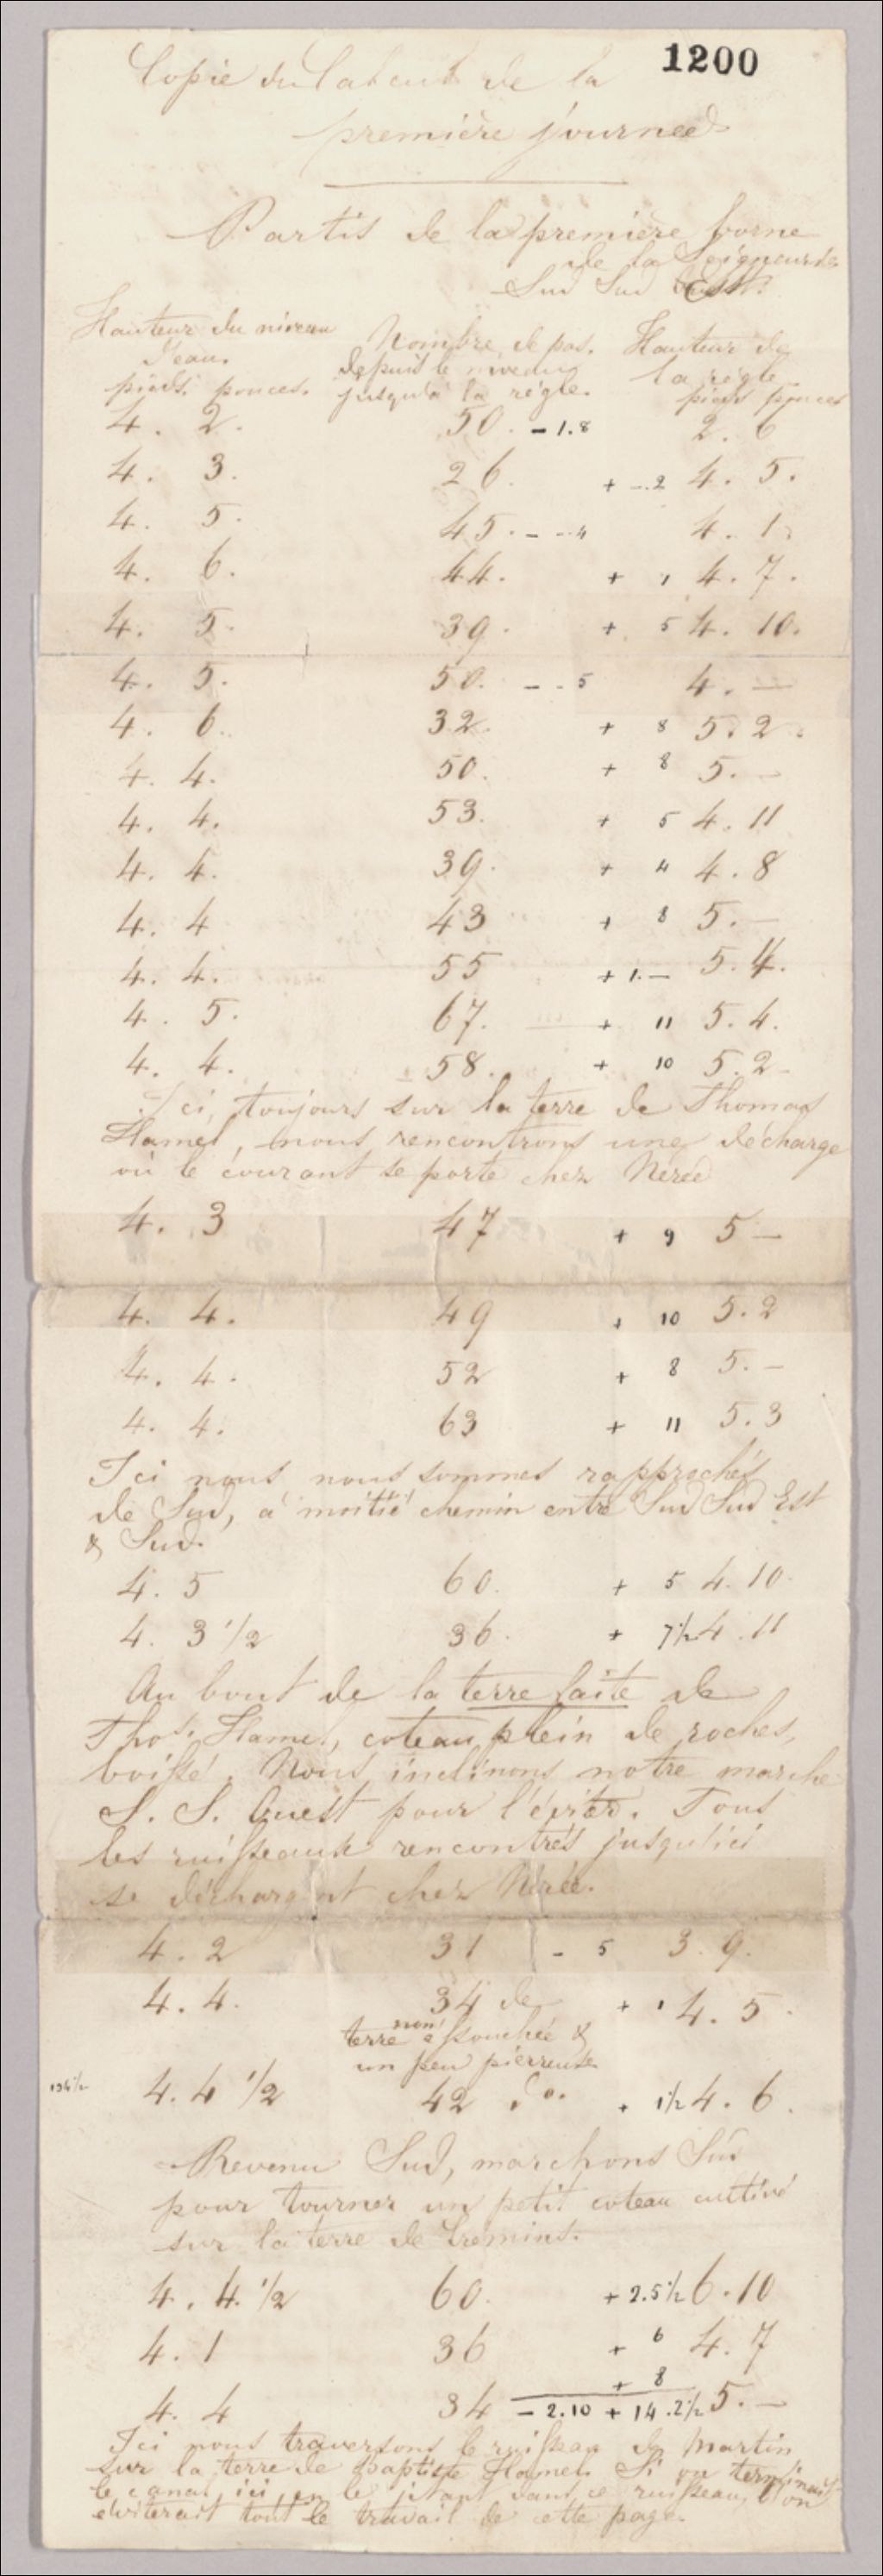 1200
Copie du calcul de la
première journée
Partis de la première borne
de la Seigneurie
Sud Sud Est.
Hauteur du niveau
d'eau.
pieds pouces.
Nombre de pas.
depuis le niveau
jusqu'à la règle.
Hauteur de
la règle.
pieds pouces
4. 2. 50. - 1.8 2. 6
4. 3. 26. + -.2 4. 5.
4. 5. 45. - -.4 4. 1.
4. 6. 44. + 1 4. 7.
4. 5. 39. + 5 4. 10.
4. 5. 50. - - 5 4. —
4. 6. 32. + 8 5. 2.
4. 4. 50. + 8 5. —
4. 4. 53. + 5 4. 11
4. 4. 39. + 4 4. 8
4. 4 43 + 8 5. —
4. 4. 55 + 1. — 5. 4.
4. 5. 67. + 11 5. 4.
4. 4. 58. + 10 5. 2
Ici, toujours sur la terre de Thomas
Hamel, nous rencontrons une décharge
où le courant se porte chez Nérée
4. 3 47 + 9 5 —
4. 4. 49 + 10 5. 2
4. 4. 52 + 8 5. —
4. 4. 63 + 11 5. 3
Ici nous nous sommes rapprochés
de Sud, à moitié chemin entre Sud Sud Est
& Sud.
4. 5 60. + 5 4. 10.
4. 3 1/2 36. + 7 1/2 4. 11
Au bout de la terre faite de
Thos. Hamel, coteau plein de roches,
boissé. Nous inclinons notre marche
S. S. Ouest pour l'éviter. Tous
les ruisseaux rencontrés jusqu'ici
se déchargent chez Nérée.
4. 2 31 - 5 3. 9.
4. 4. 34 de + 1 4. 5.
non
terre essouchée &
un peu pierreuse
4. 4 1/2 42 do. + 1 1/2 4. 6.
Revenu Sud, marchons Sud
pour tourner un petit coteau cultivé
sur la terre de
4. 4. 1/2 60. + 2.5 1/2 6. 10
4. 1 36 + 6 4. 7
+ 8
4. 4 34 - 2.10 + 14.2 1/2 5. —
Ici nous traversons le ruisseau de Martin
sur la terre de Baptiste Hamel. Si on terminait
le canal ici en le jetant dans ce ruisseau, on
éviterait tout le travail de cette page.